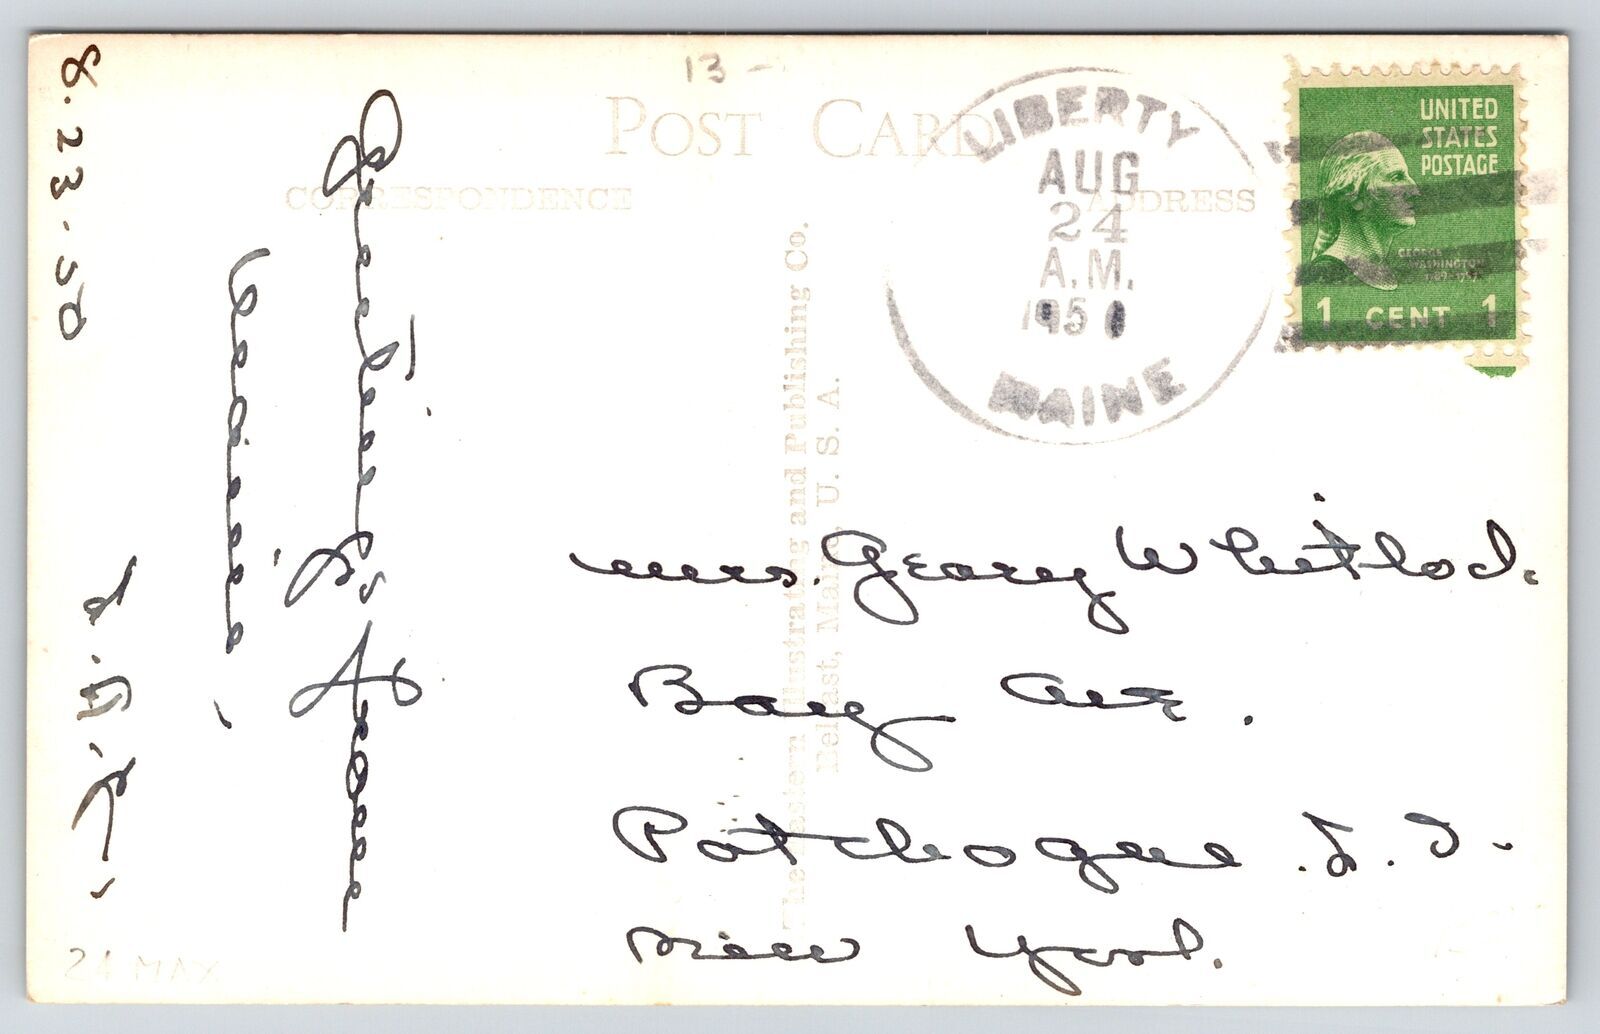 8.23.50
13 -
POST CARD
CORRESPONDENCE
ADDRESS
LIBERTY
AUG
24
A.M.
1950
MAINE
UNITED
STATES
POSTAGE
GEORGE
WASHINGTON
1789-1797
1 CENT 1
The Eastern Illustrating and Publishing Co.
Belfast, Maine, U. S. A.
Mrs. Geary Whitlock
Bay Ave.
Patchogue L. I.
New York.
24 MAX